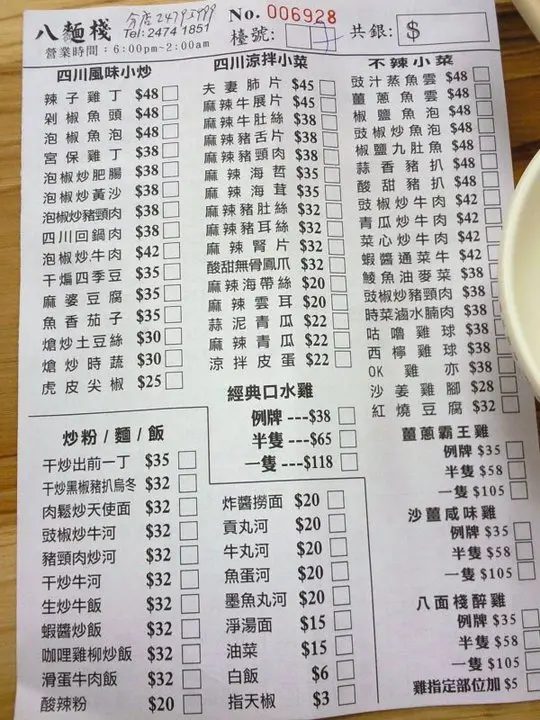 八麵棧
分店24795999
Tel: 2474 1851
營業時間：6:00pm~2:00am
No. 006928
檯號：
共銀： $
四川風味小炒
辣子雞丁 $48
剁椒魚頭 $48
泡椒魚泡 $48
宮保雞丁 $38
泡椒炒肥腸 $38
泡椒炒黃沙 $38
泡椒炒豬頸肉 $38
四川回鍋肉 $38
泡椒炒牛肉 $42
干煸四季豆 $35
麻婆豆腐 $35
魚香茄子 $35
熗炒土豆絲 $30
熗炒時蔬 $30
虎皮尖椒 $25
四川涼拌小菜
夫妻肺片 $45
麻辣牛展片 $45
麻辣牛肚絲 $38
麻辣豬舌片 $38
麻辣豬頸肉 $38
麻辣海哲 $35
麻辣海茸 $35
麻辣豬肚絲 $32
麻辣豬耳絲 $32
麻辣腎片 $32
酸甜無骨鳳爪 $32
麻辣海帶絲 $20
麻辣雲耳 $20
蒜泥青瓜 $22
麻辣青瓜 $22
涼拌皮蛋 $22
不辣小菜
豉汁蒸魚雲 $48
薑蔥魚雲 $48
椒鹽魚泡 $48
豉椒炒魚泡 $48
椒鹽九肚魚 $48
蒜香豬扒 $48
酸甜豬扒 $48
豉椒炒牛肉 $42
青瓜炒牛肉 $42
菜心炒牛肉 $42
蝦醬通菜牛 $42
鯪魚油麥菜 $38
豉椒炒豬頸肉 $38
時菜滷水腩肉 $38
咕嚕雞球 $38
西檸雞球 $38
OK雞亦 $38
沙姜雞腳 $28
紅燒豆腐 $32
經典口水雞
例牌 ---$38
半隻 ---$65
一隻 ---$118
炒粉/麵/飯
干炒出前一丁 $35
干炒黑椒豬扒烏冬 $32
肉鬆炒天使面 $32
豉椒炒牛河 $32
豬頸肉炒河 $32
干炒牛河 $32
生炒牛飯 $32
蝦醬炒飯 $32
咖哩雞柳炒飯 $32
滑蛋牛肉飯 $32
酸辣粉 $20
炸醬撈面 $20
貢丸河 $20
牛丸河 $20
魚蛋河 $20
墨魚丸河 $20
淨湯面 $15
油菜 $15
白飯 $6
指天椒 $3
薑蔥霸王雞
例牌 $35
半隻 $58
一隻 $105
沙薑咸味雞
例牌 $35
半隻 $58
一隻 $105
八面棧醉雞
例牌 $35
半隻 $58
一隻 $105
雞指定部位加 $5